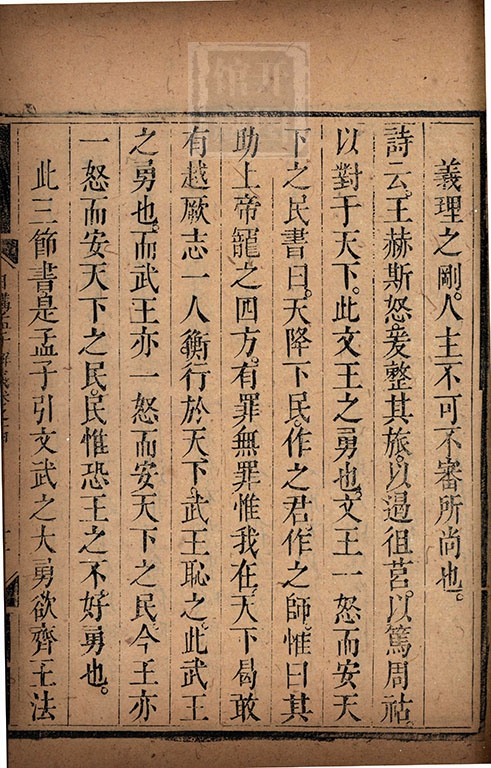 義理之剛。人主不可不審所尚也。
詩云。王赫斯怒。爰整其旅。以遏徂莒。以篤周祜。
以對于天下。此文王之勇也。文王一怒而安天
下之民。書曰。天降下民。作之君。作之師。惟曰其
助上帝寵之四方。有罪無罪惟我在。天下曷敢
有越厥志一人衡行於天下。武王恥之。此武王
之勇也。而武王亦一怒而安天下之民。今王亦
一怒而安天下之民。民惟恐王之不好勇也。
此三節書是孟子引文武之大勇欲齊王法